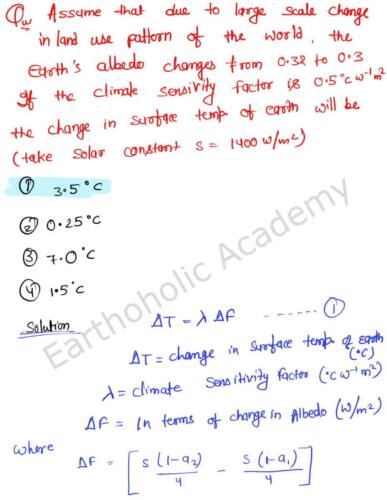 Qu Assume that due to large scale change
in land use pattern of the world, the
Earth's albedo changes from 0.32 to 0.3
If the climate sensivity factor is 0.5°C W⁻¹m²
the change in surface temp. of earth will be
(take Solar constant S = 1400 W/m²)
① 3.5°C
② 0.25°C
③ 7.0°C
④ 1.5°C
Solution
ΔT = λ ΔF ------ ①
ΔT = change in surface temp. of Earth
(°C)
λ = climate Sensitivity factor (°C W⁻¹ m²)
ΔF = In terms of change in Albedo (W/m²)
where
ΔF = [ S (1-a₂) / 4 - S (1-a₁) / 4 ]
Earthoholic Academy